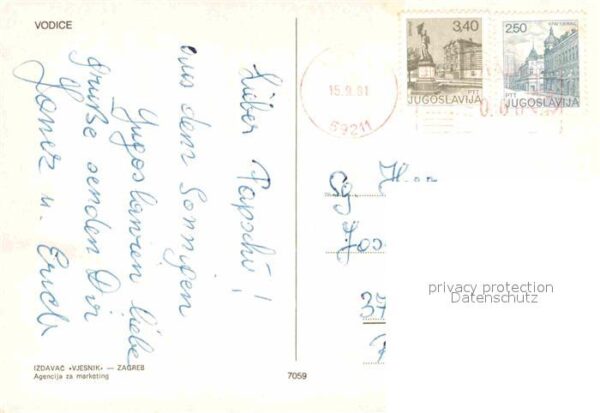 VODICE
Lieber Papschi!
aus dem Sonnigen
Jugoslawien liebe
Grüße senden Dir
u. Erich
IZDAVAČ »VJESNIK« — ZAGREB
Agencija za marketing
7059
15.9.81
59211
3,40
PTT
JUGOSLAVIJA
2,50
KRAGUJEVAC
PTT
JUGOSLAVIJA
Sg. Herr
Jos
privacy protection
Datenschutz